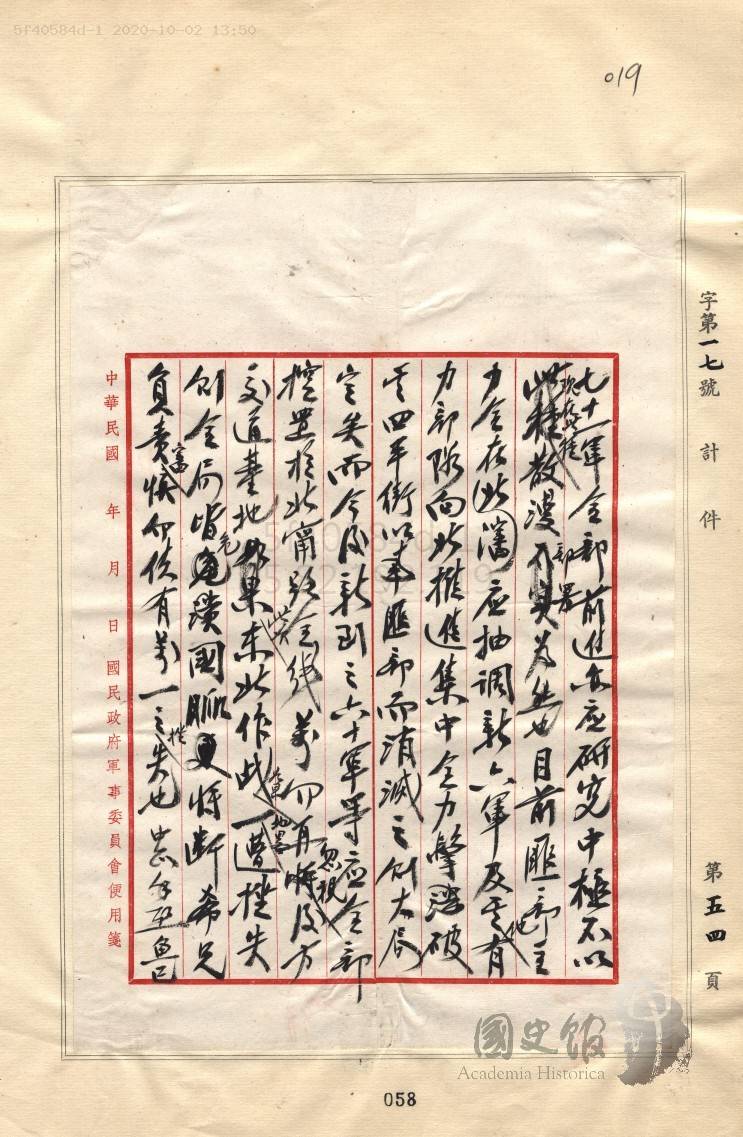 5f40584d-1 2020-10-02 13:50
019
字第一七號 計 件
第五四頁
七十一軍全部前進亦应研究中極不以
現在此種
此種散漫部署為然也目前匪部主
力全在北滿应抽調新六軍及其他有
力部隊向北推進集中全力擊破
其四平街以南匪部而消滅之則大局
定矣而今後新到之六十軍等应全部
控置於北甯路全线萬勿再忽視後方
交通基地如果東北作战一遭挫失
則全局皆危國脈更將断希兄
負責慎勿使有萬一之挫失也中正手啟魯
中華民國 年 月 日 國民政府軍事委員會便用箋
國史館
Academia Historica
058